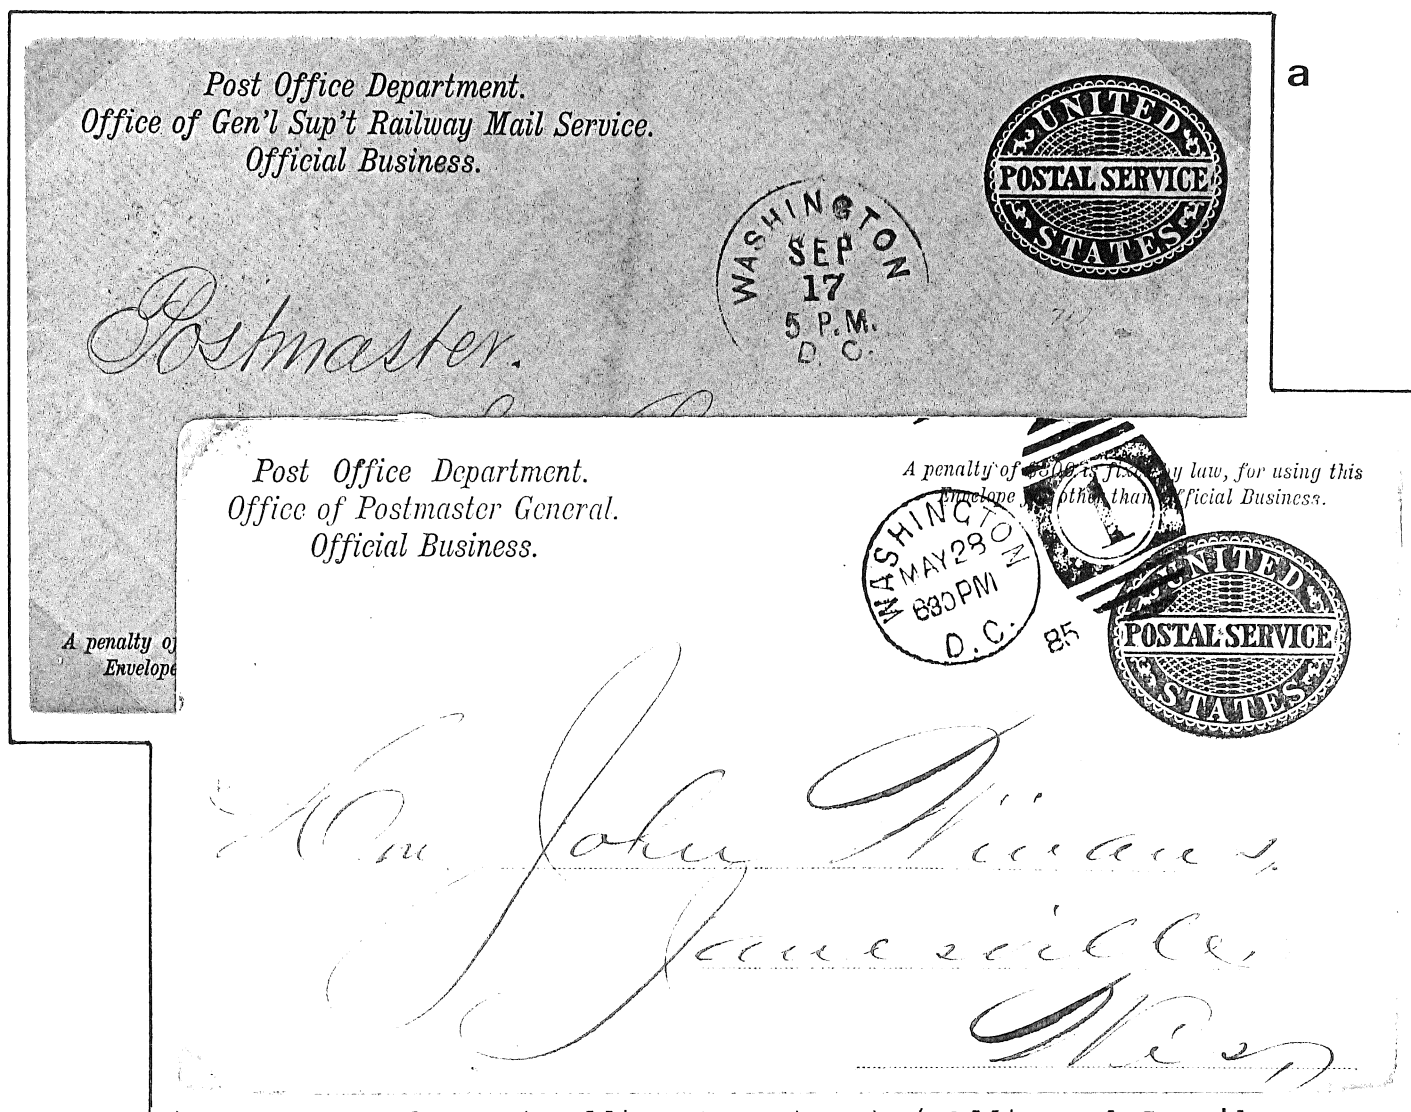 a
Post Office Department.
Office of Gen'l Sup't Railway Mail Service.
Official Business.
UNITED
POSTAL SERVICE
STATES
WASHINGTON
SEP
17
5 P.M.
D. C.
Postmaster.
A penalty of
Envelope
Post Office Department.
Office of Postmaster General.
Official Business.
A penalty of $300 is fixed by law, for using this
Envelope for other than Official Business.
1
WASHINGTON
MAY 28
630 PM
D. C.
85
UNITED
POSTAL SERVICE
STATES
Hon John Winans,
Janesville,
Wis